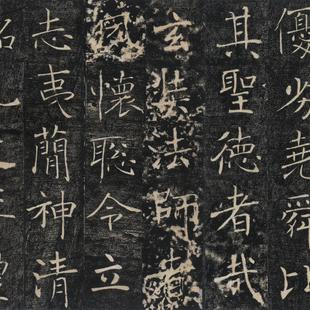 優劣堯舜比
其聖德者哉
玄奘法師者
夙懷聰令立
志夷簡神清